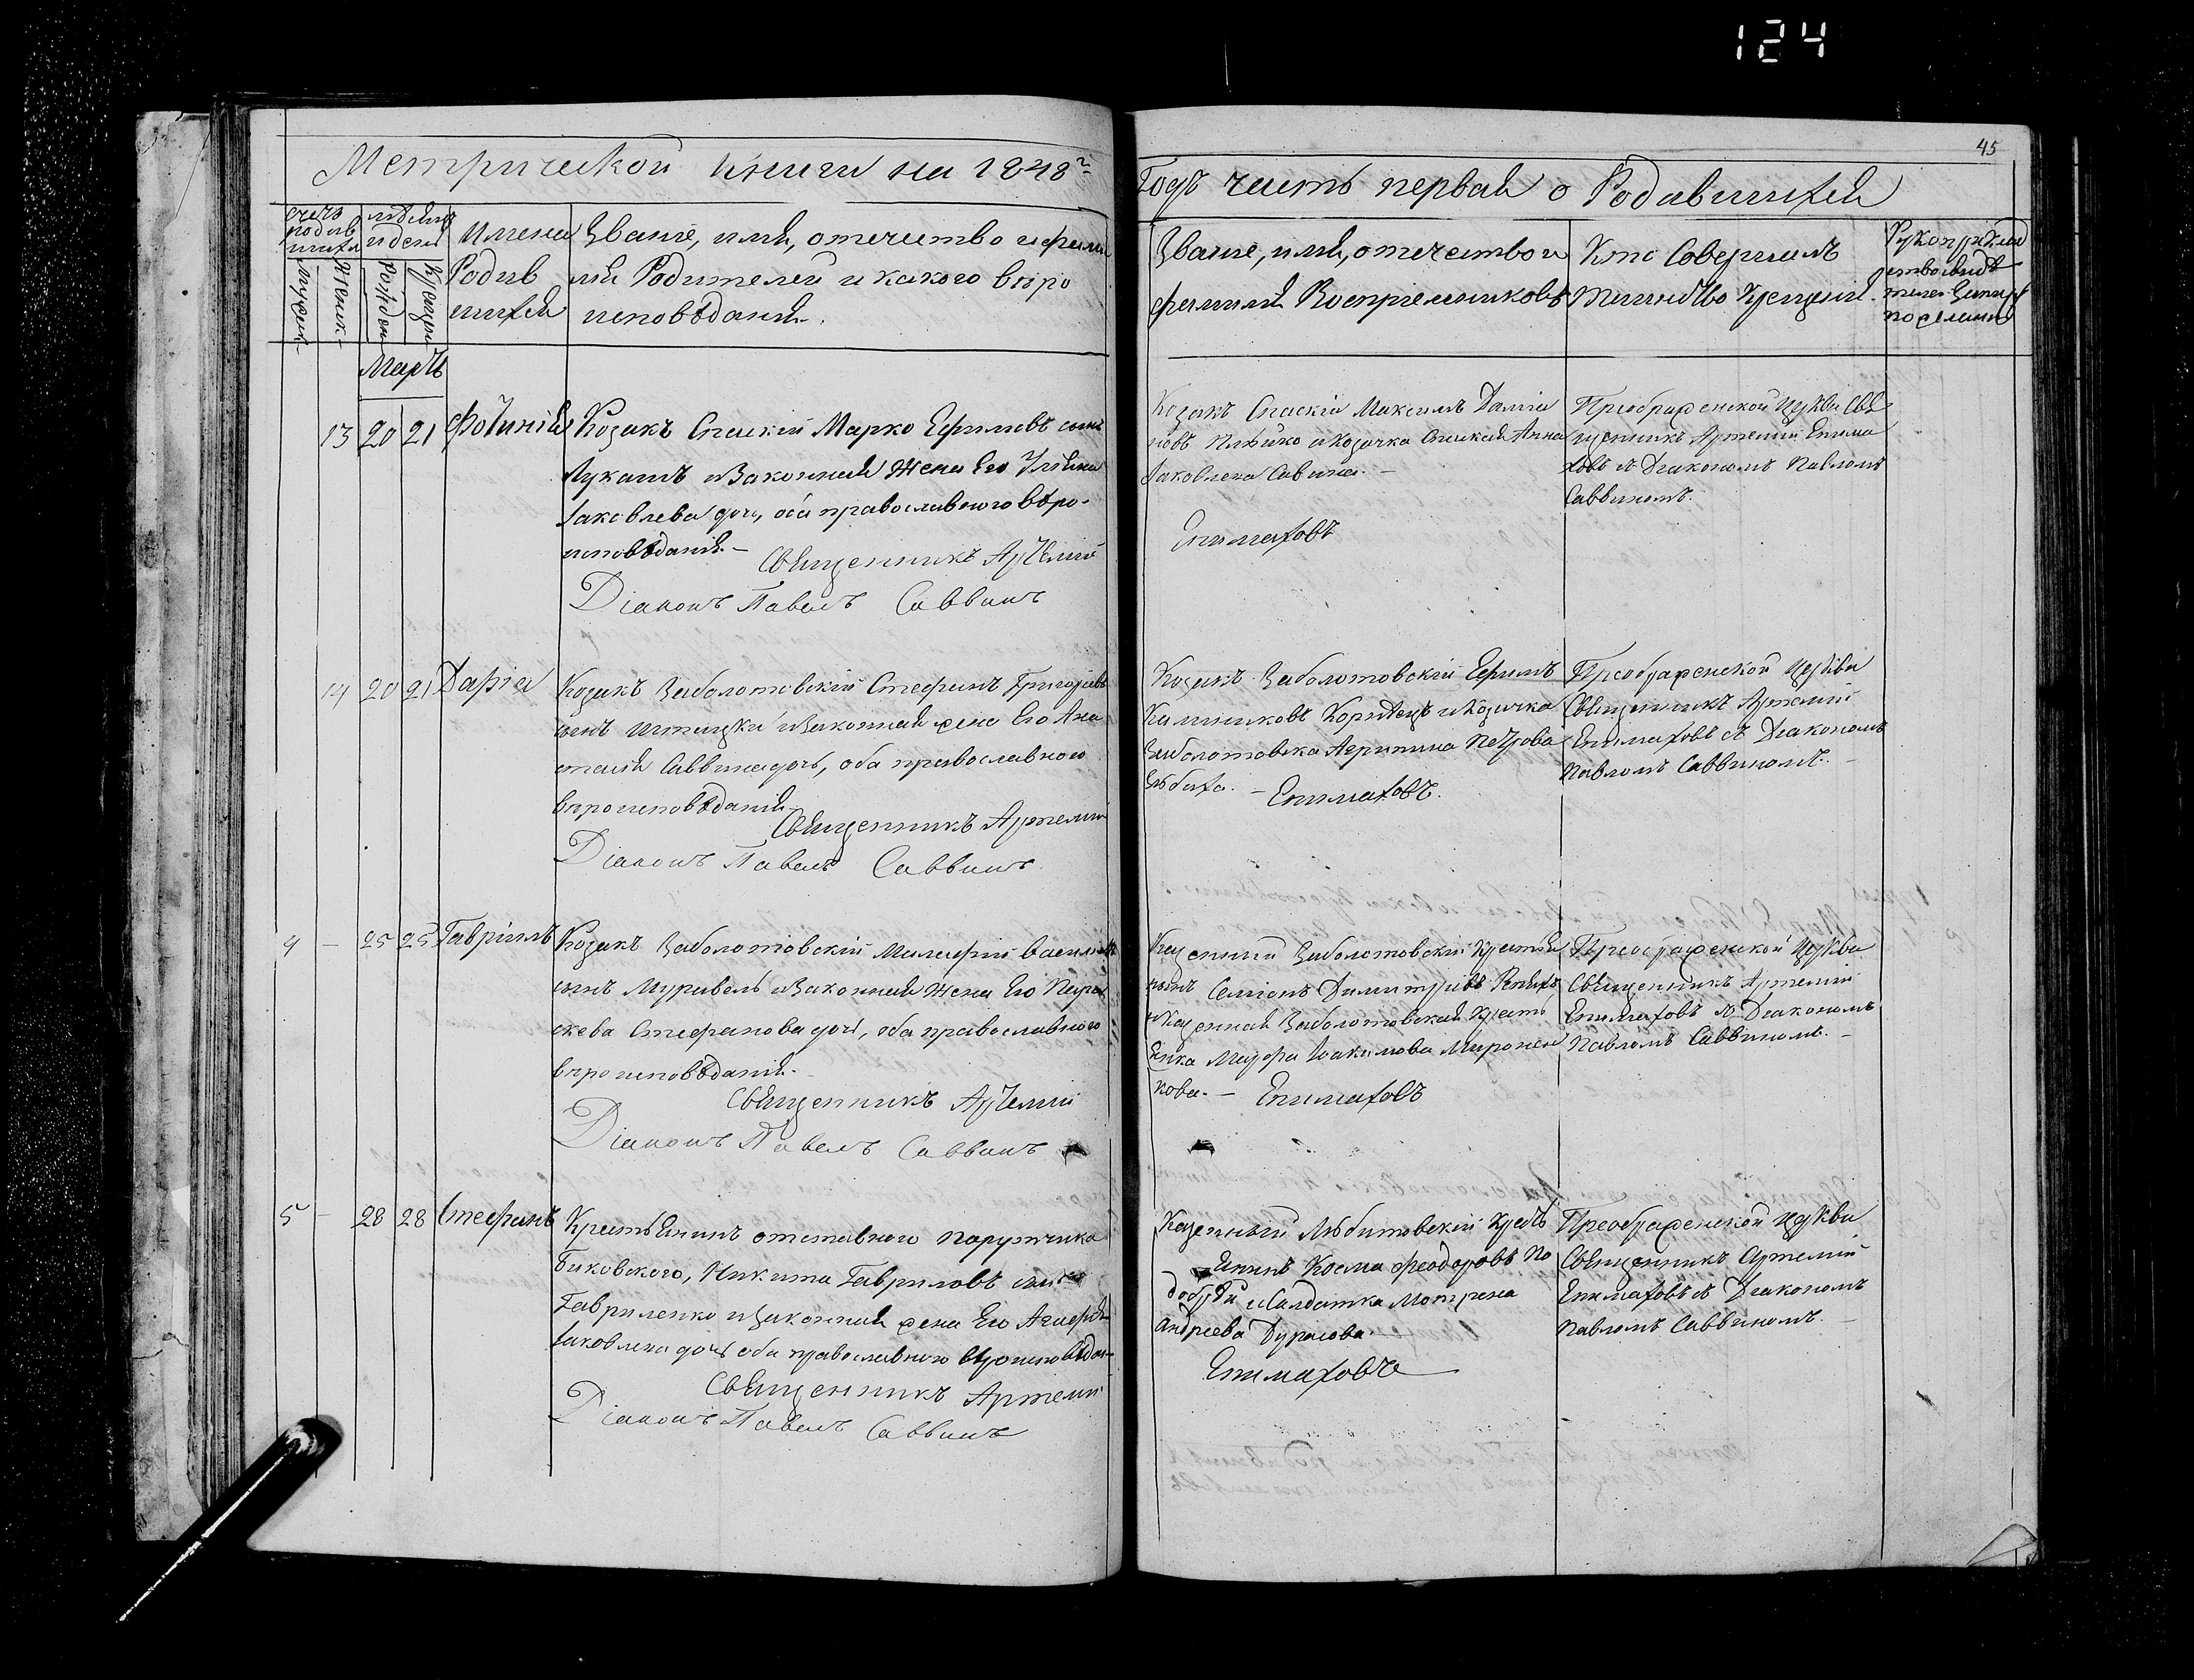 124
45
Метрической книги на 1848г.
Годъ часть первая о Родившихся
счетъ родившихся
мѣсяцъ и день
Имена Родившихся
Званіе, имя, отечество и фамилія Родителей и какого вѣроисповѣданія.
Мужеск.
Женск.
Рожден.
Крещен.
Званіе, имя, отечество и фамилія Воспріемниковъ
Кто Совершилъ таинство Крещенія.
Мартъ
13 20 21 Фотинія
Козакъ Спаскій Марко Ефимовъ сынъ
Лукашъ и Законная Жена Его Уліяна
Іаковлева дочь, оба православного вѣро-
исповѣданія.-
Священникъ Артемій
Діаконъ Павелъ Саввинъ
Козакъ Спаскій Максимъ Даміа
новъ и Козачка Спиская Анна
Іаковлева Савина.-
Епимаховъ
Преображенской Церкви Свя
щенникъ Артемій Епима
ховъ съ Діакономъ Павломъ
Саввиномъ.
14 20 21 Дарія
Козакъ Заболотовскій Стефанъ Григоріевъ
сынъ и Законная жена Его Ана
стасія Саввина дочь, оба православного
вѣроисповѣданія.
Священникъ Артемій
Діаконъ Павелъ Саввинъ.
Козакъ Заболотовскій Ефимъ
и Козачка
Заболотовска Агрипина Петрова
Епимаховъ.
Преображенской Церкви
Священникъ Артемій
Епимаховъ съ Діакономъ
Павломъ Саввиномъ.-
4 - 25 25 Гавріилъ
Козакъ Заболотовскій Василіевъ
сынъ Муравель и Законная Жена Его Пара
скева Стефанова дочь, оба православного
вѣроисповѣданія.-
Священникъ Артемій
Діаконъ Павелъ Саввинъ
Казенный Заболотовскій Крестья
нинъ Семіонъ Димитріевъ
и Казенная Заболотовская Кресть
янка Марфа Іоакимова Миронен
кова.-
Епимаховъ
Преображенской Церкви
Священникъ Артемій
Епимаховъ съ Діакономъ
Павломъ Саввиномъ.-
5 - 28 28 Стефанъ
Крестьянинъ отставного поручика
Быковского, Никита Гавриловъ сынъ
Гавриленко и Законная жена Его Агафія
Іаковлева дочь оба православного вѣроисповѣдан-
Священникъ Артемій
Діаконъ Павелъ Саввинъ
Казенный Любитовскій Кресть
янинъ Косма Феодоровъ По
добрій и Салдатка Мотрона
Андреева Дурасова.-
Епимаховъ
Преображенской Церкви
Священникъ Артемій
Епимаховъ съ Діакономъ
Павломъ Саввиномъ.-